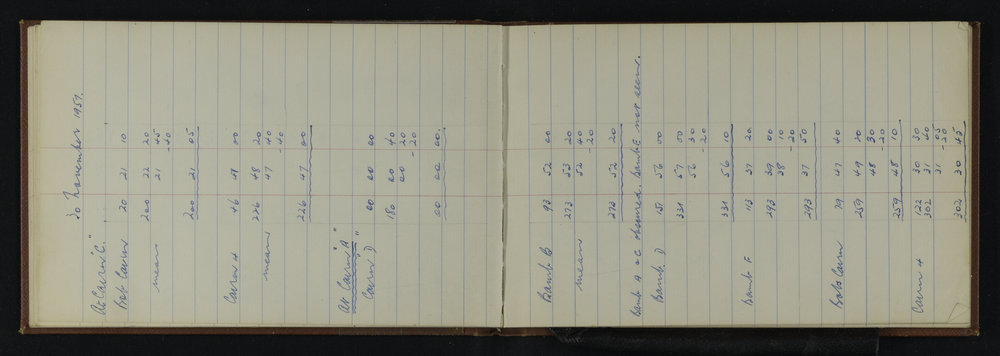 30 November 1957.
At Cairn "C."
Bob Cairn 20 21 10
200 22 20
mean 21 45
-40
200 21 05
Cairn H 46 49 00
226 48 20
mean 47 40
-40
226 47 00
At Cairn "A"
Cairn D 00 00 00
180 00 40
00 20
-20
00 00 00.
Bamb B 93 52 00
273 53 20
mean 52 40
-20
273 52 20
Bamb A & C observed. Bamb E not seen.
Bamb. D 151 56 00
331 57 00
56 30
-20
331 56 10
Bamb F 113 37 20
293 39 00
38 10
-20
293 37 50
Bob Cairn 79 47 40
259 49 20
48 30
-20
259 48 10
Cairn H 122 30 30
302 31 40
31 05
-20
302 30 45